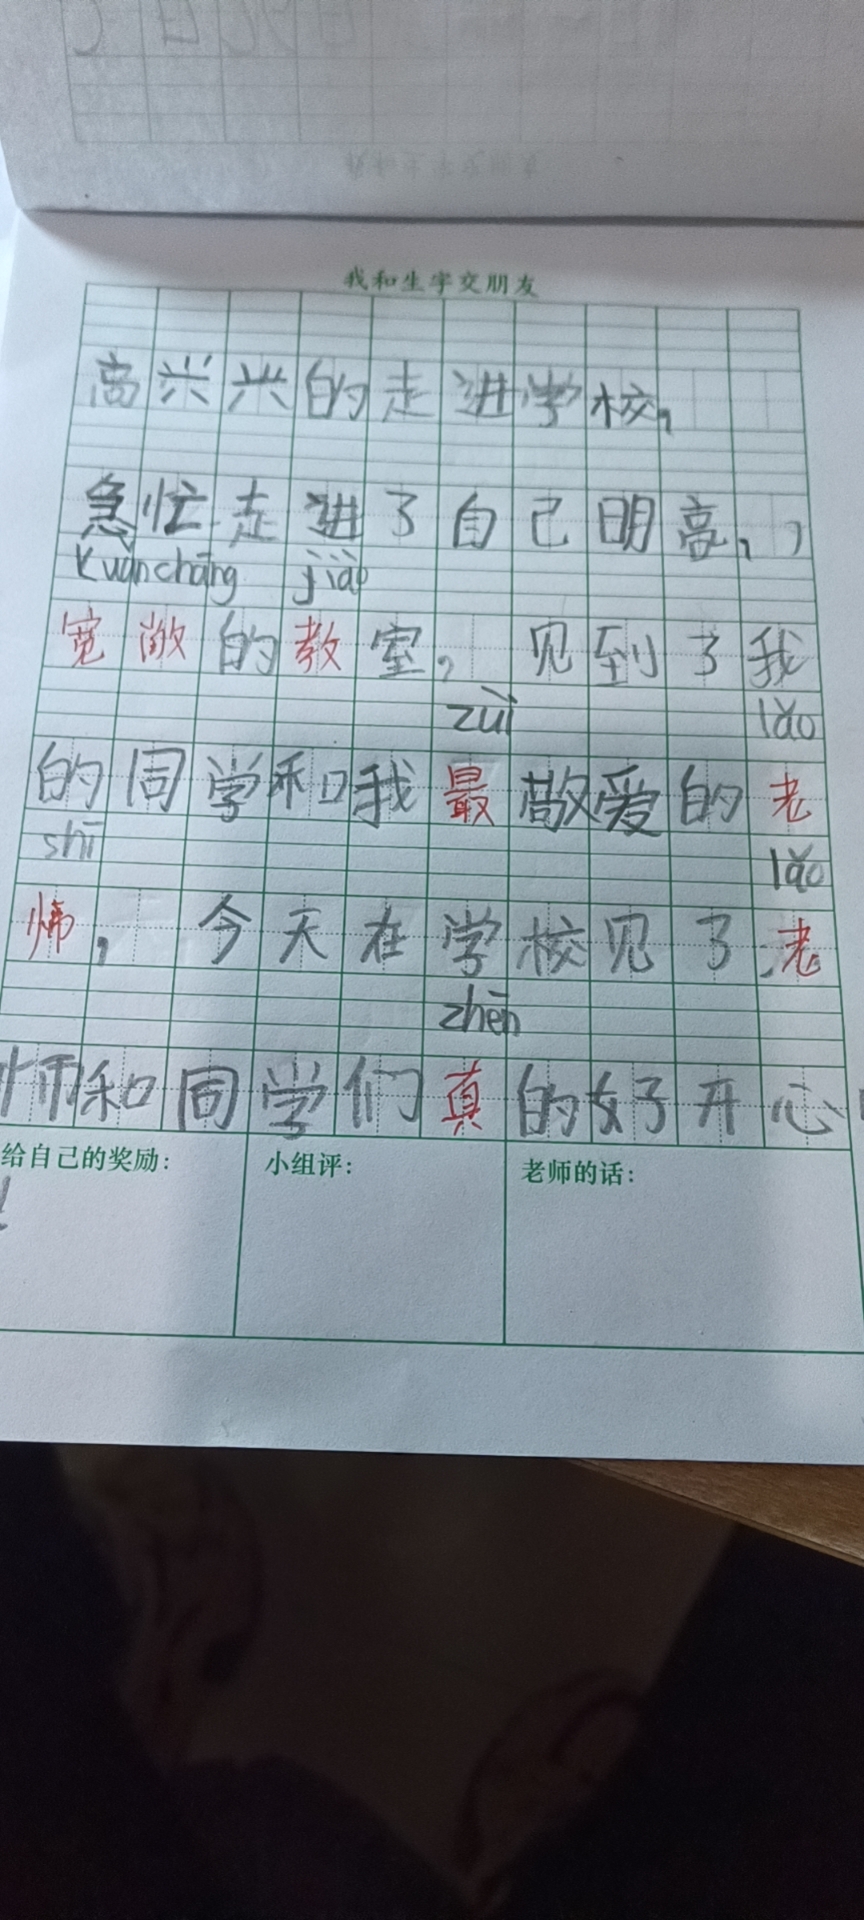 我和生字交朋友
高兴兴的走进学校,
急忙走进了自己明高,,
kuānchǎng jiào
宽敞的教室,见到了我
zuì lǎo
的同学和我最敬爱的老
shī lǎo
师,今天在学校见了老
zhēn
师和同学们真的好开心
给自己的奖励: 小组评: 老师的话: